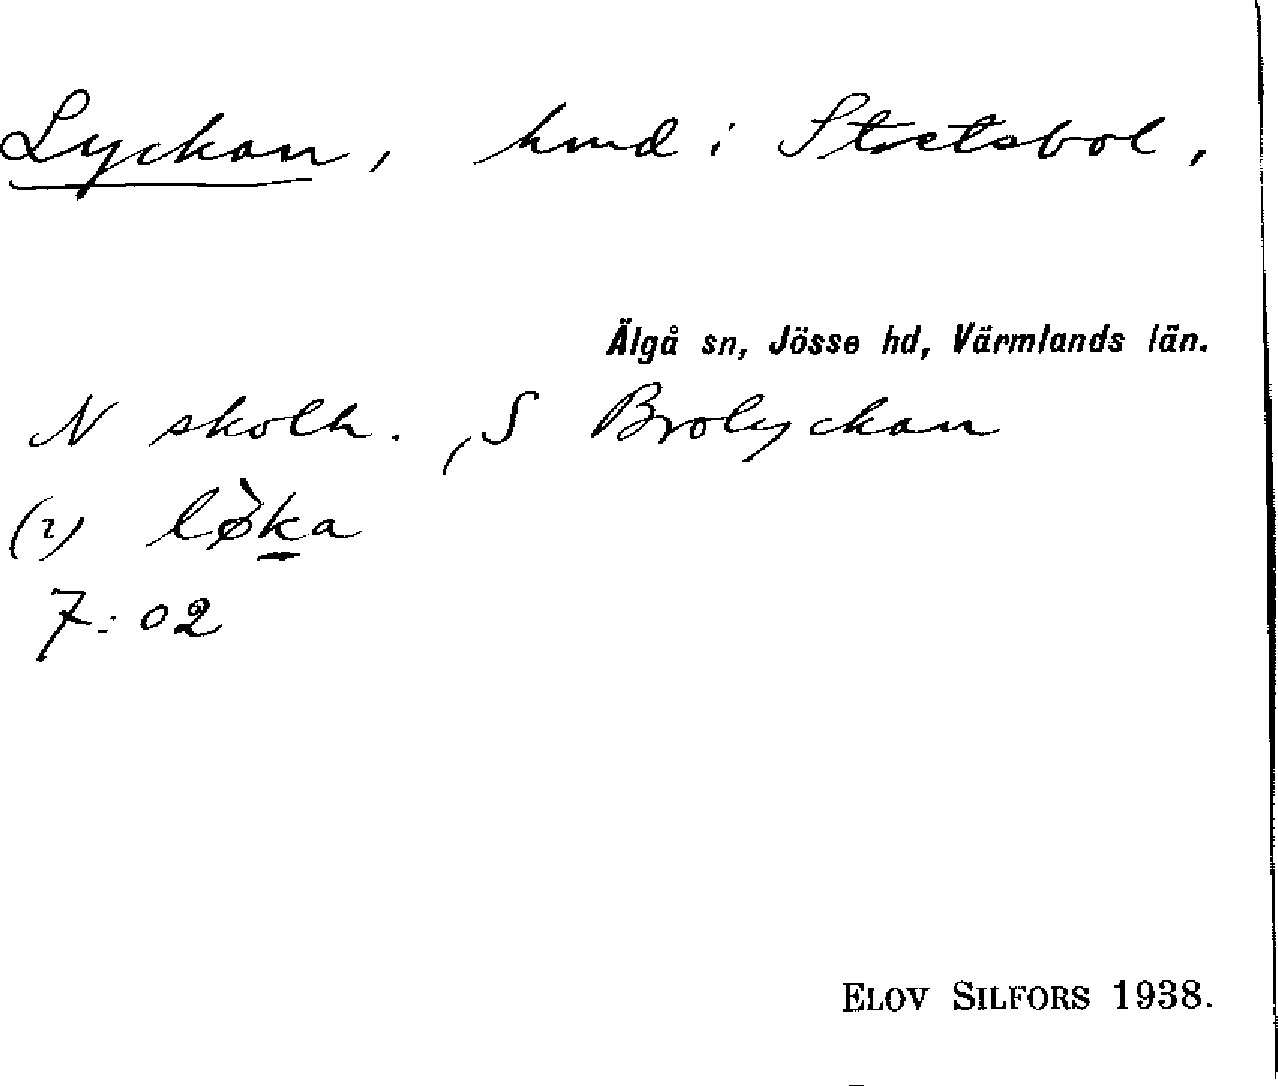 Lyckan, hmd i Stortsbol,
Älgå sn, Jösse hd, Värmlands län.
N skolh., S Brolyckan
(2) lø̀ka
7:02
ELOV SILFORS 1938.